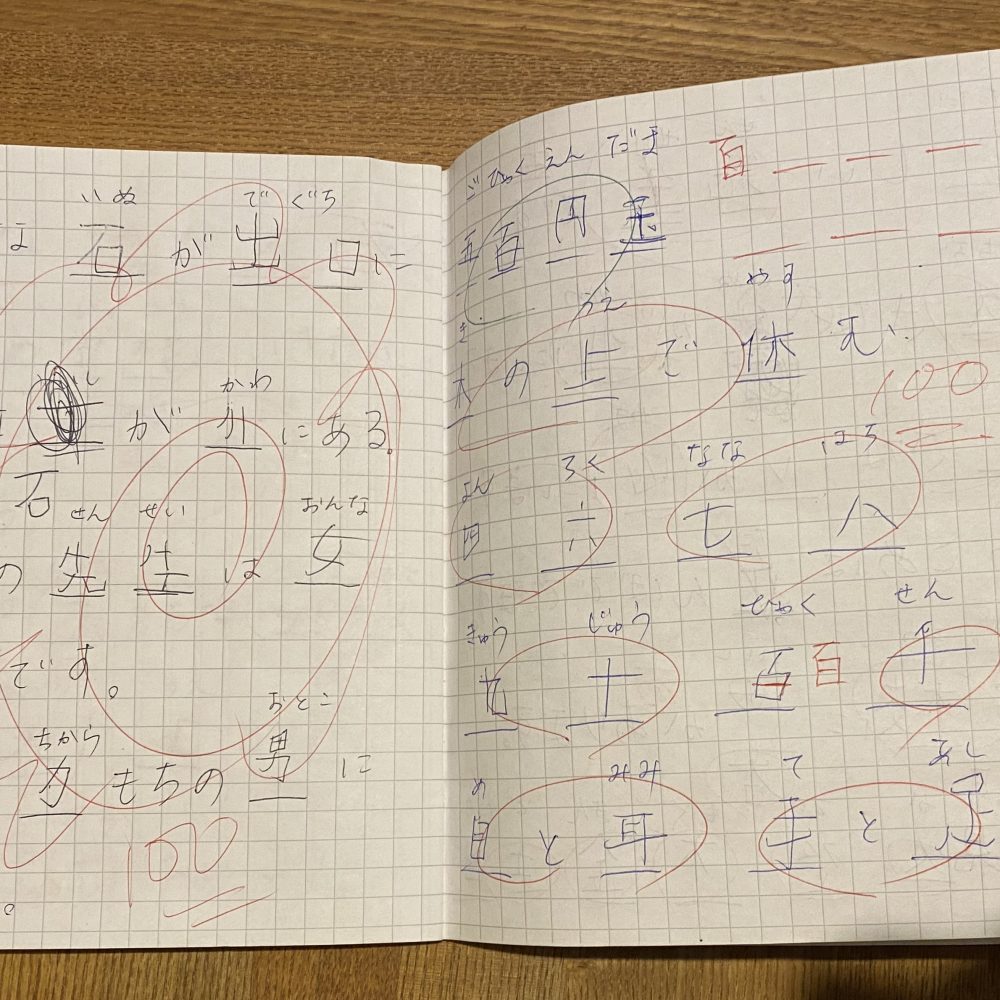 いぬ でぐち
石 が 出 口 に
かわ
が 川 にある。
石
せん せい おんな
の 先 生 は 女
です。
ちから おとこ
力 もちの 男 に
100
。
ごひゃく えん だま
五百円玉
百
き うえ やす
木の上で休む。
100
よん ろく なな はち
四 六 七 八
きゅう じゅう ひゃく せん
九 十 百 百 千
め みみ て あし
目と耳 手と足